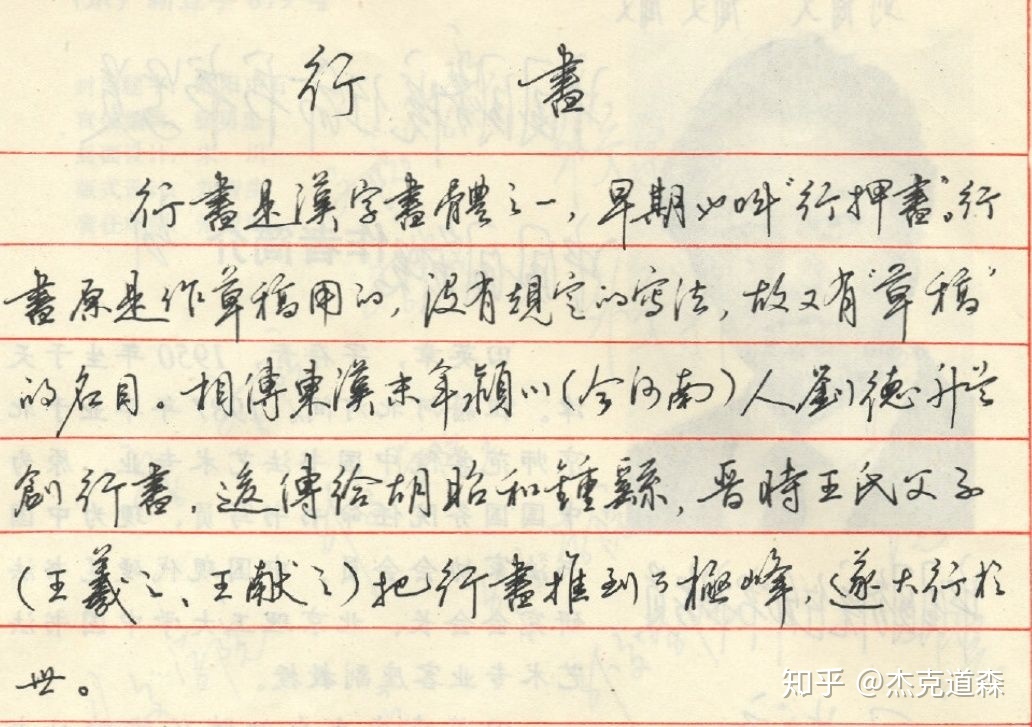 行書
行書是漢字書體之一，早期也叫"行押書"。行
書原是作草稿用的，沒有規定的寫法，故又有"草稿"
的名目。相傳東漢末年潁川(今河南)人劉德升
創行書，後傳給胡昭和鍾繇，晉時王氏父子
(王羲之、王献之)把行書推到了極峰，遂大行於
世。
知乎 @杰克道森